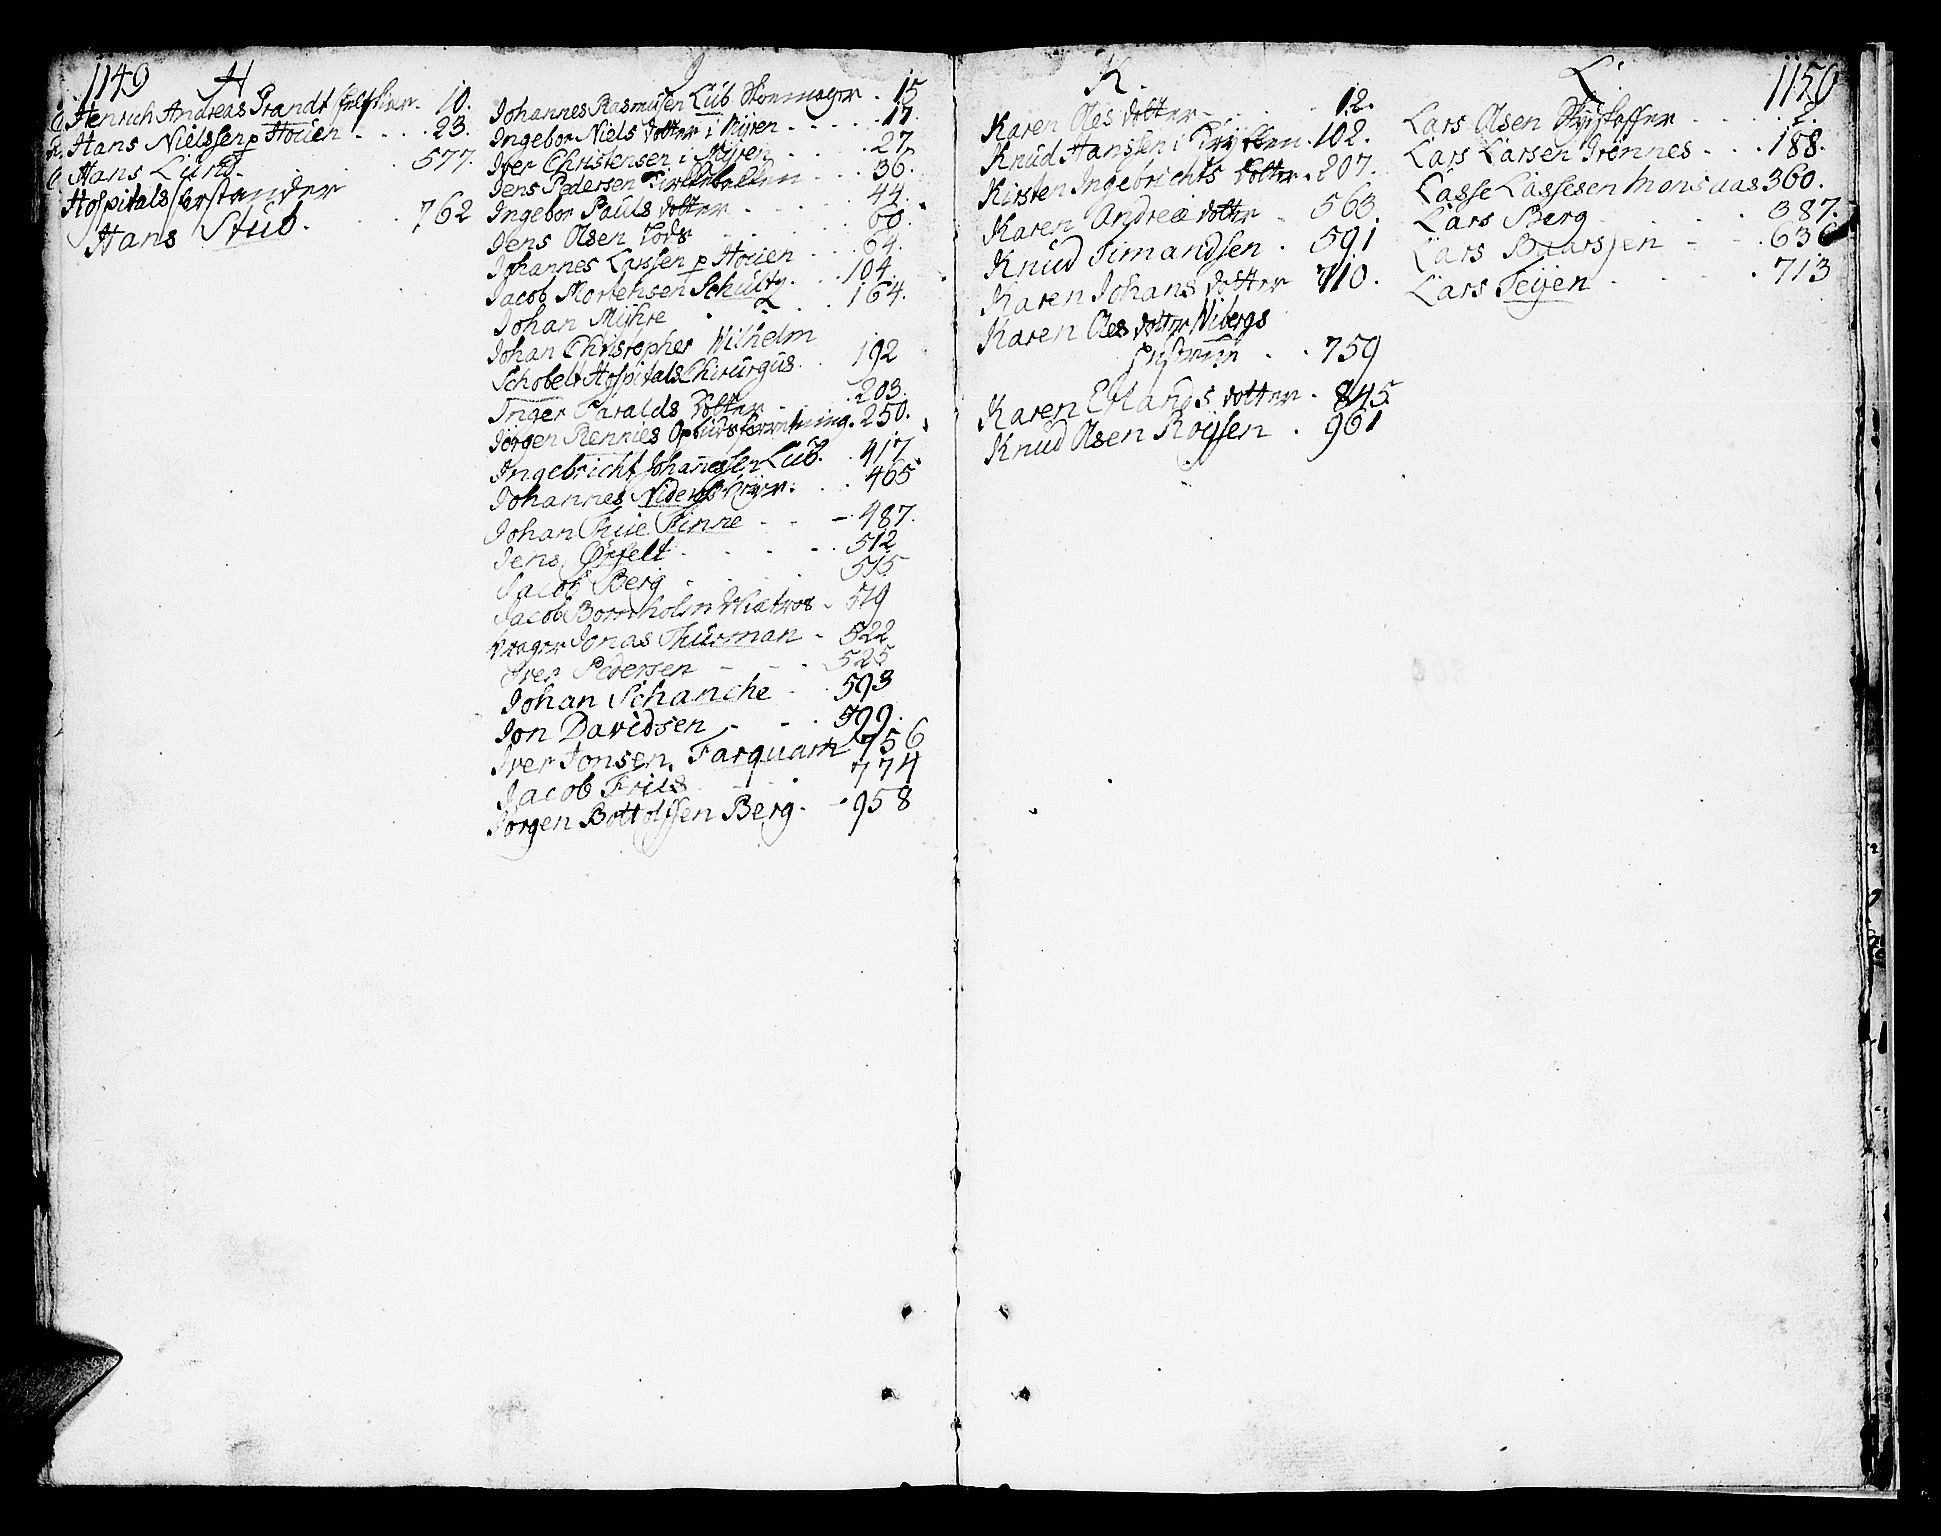 1149
H
Henrich Andreas Brandt 10.
Hans Nielssen p Houen 23.
Hans Lund. 577.
Hospitals forstander
Hans Stub. 762
J
Johannes Rasmusen Lub Skoemager 15
Ingebor Niels dotter i Myren 17.
Iver Christensen i Myren 27
Jens Pedersen Kirkebakken 36.
Ingebor Pauls dotter 44.
Jens Olsen Lods 60.
Johannes Larssen p Houen 64.
Jacob Mortensen Schultz 104.
Johan Myhre 164.
Johan Christopher Wilhelm
Schobelt Hospitals Chirurgus 192
Inger Haralds dotter 203.
Jörgen Rennies Opbudsforretning 250.
Ingebricht Johannesen Lub. 417
Johannes 465
Johan Thue Finne 487.
Jens Örfelt 512
Jacob Berg 515
Jacob Bornholm Matros 519
Jonas Thurman 522
Iver Pedersen 525
Johan Schanche 593
Jon Davidsen 599.
Iver Jonsen Farquam 756
Jacob Friis 774
Jörgen Bottolfsen Berg 958
K.
Karen Oles dotter 12.
Knud Hanssen i 102.
Kirsten Ingebrichts dotter 207.
Karen Andreæ dotter 563.
Knud Simandsen 591
Karen Johans dotter 710.
Karen Oles dotter Wibergs
759
Karen Erlands dotter 845
Knud Olsen Röysen 961
L.
1150
Lars Olsen 2.
Lars Larsen Grönnes 188.
Lasse Lassesen Monsaas 360.
Lars Berg 387.
Lars Baarssen 636
Lars Teigen 713